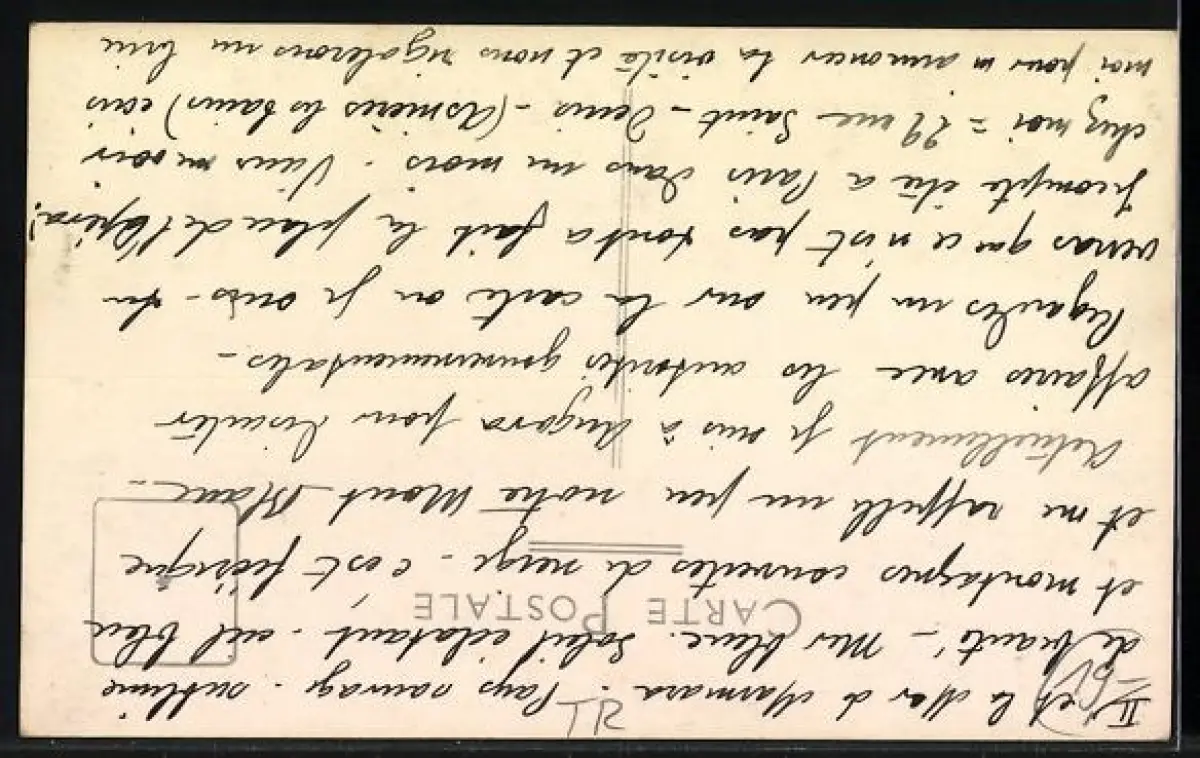 II) et la Mer de Marmara. Pays sauvage. sublime
de beauté - Mer bleue. Soleil éclatant. ciel bleu
CARTE POSTALE
et montagnes couvertes de neige - c'est féérique
et me rappelle un peu notre Mont Blanc -
Actuellement je suis à Angora pour discuter
affaires avec les autorités gouvernementales -
Regardes un peu sur la carte où je suis - tu
verras que ce n'est pas tout a fait la place de l'Opéra!
Je compte être a Paris dans un mois. Viens me voir
chez moi = 29 rue Saint-Denis - (Asnières les bains) écris
moi pour m'annoncer ta visite et nous rigolerons un brin